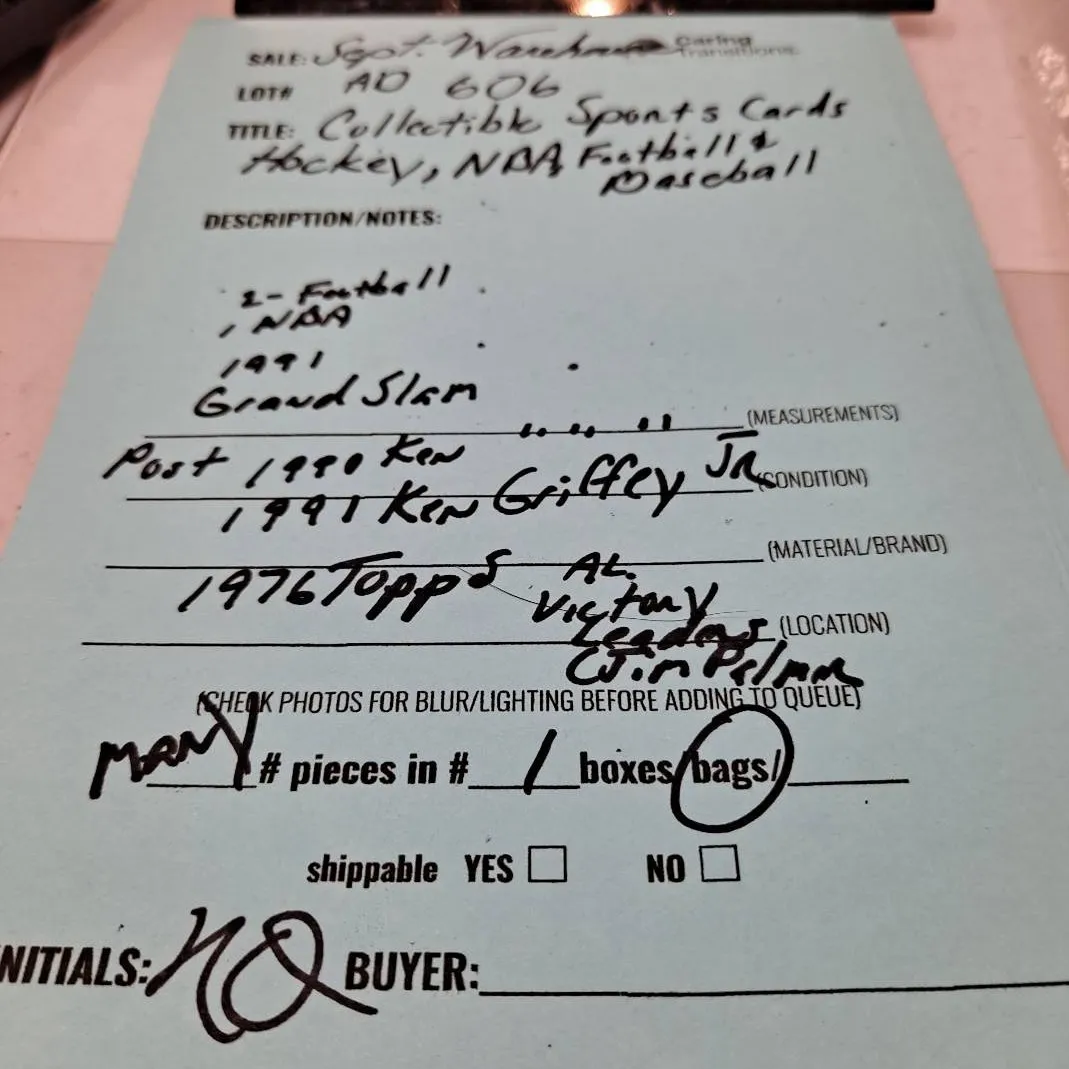 SALE: Sept. Warehouse Caring Transitions
LOT# AD 606
TITLE: Collectible Sports Cards
Hockey, NBA, Football &
Baseball
DESCRIPTION/NOTES:
2 - Football
1 NBA
1991
Grand Slam
(MEASUREMENTS)
Post 1990 Ken
(CONDITION)
1991 Ken Griffey Jr.
(MATERIAL/BRAND)
1976 Topps AL.
Victory
Leaders (LOCATION)
(Jim Palmer
(CHECK PHOTOS FOR BLUR/LIGHTING BEFORE ADDING TO QUEUE)
Many # pieces in # 1 boxes/bags/
shippable YES NO
NITIALS: BUYER: